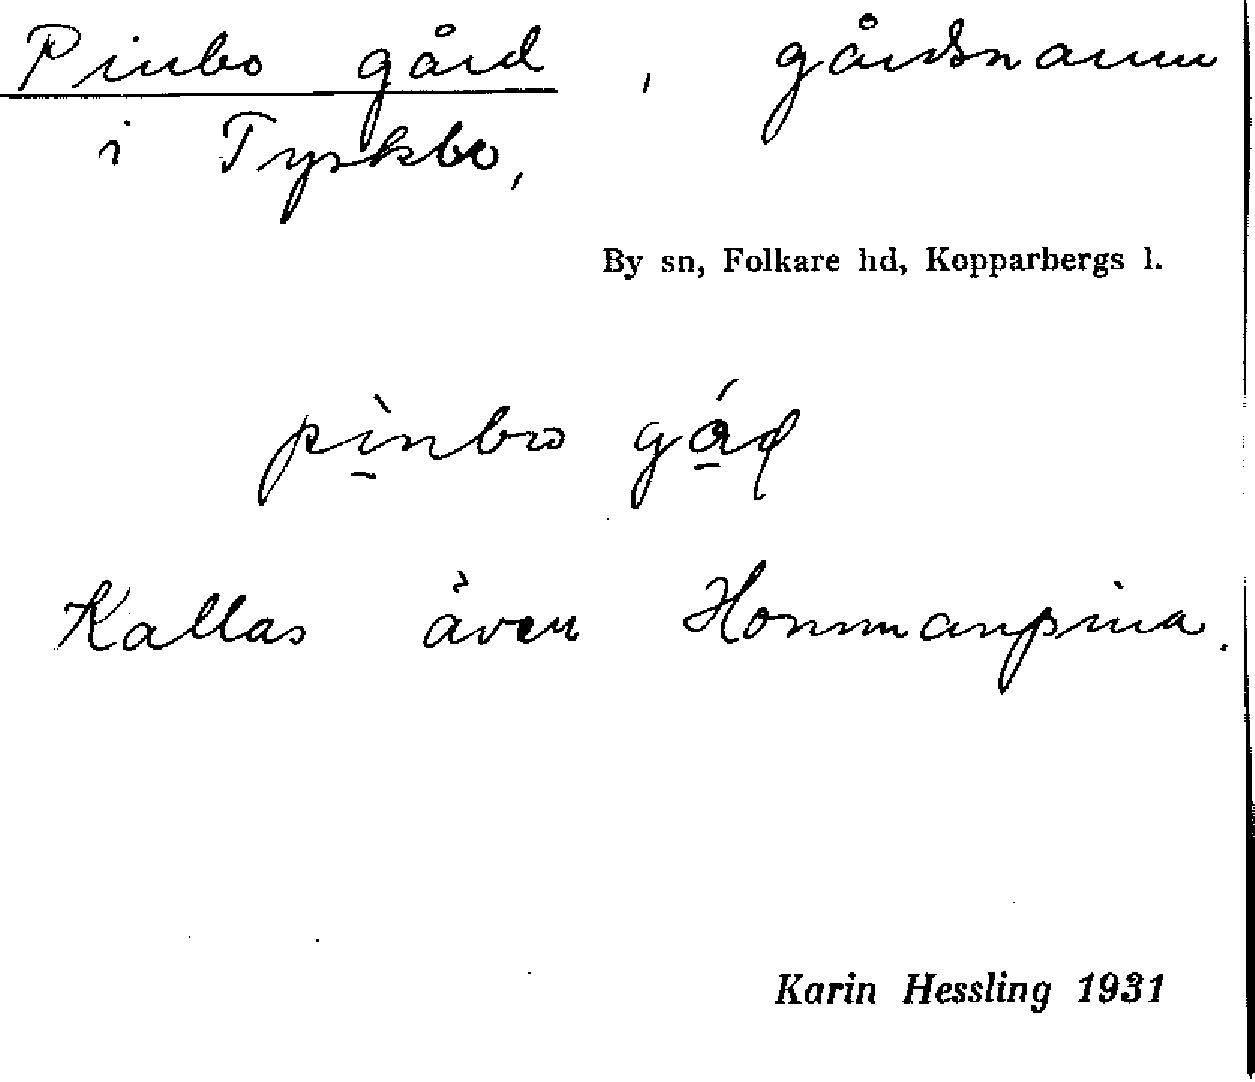 Pinbo gård, gårdsnamn
i Tyskbo,
By sn, Folkare hd, Kopparbergs l.
pìnbo gád
Kallas även Hommanpina.
Karin Hessling 1931